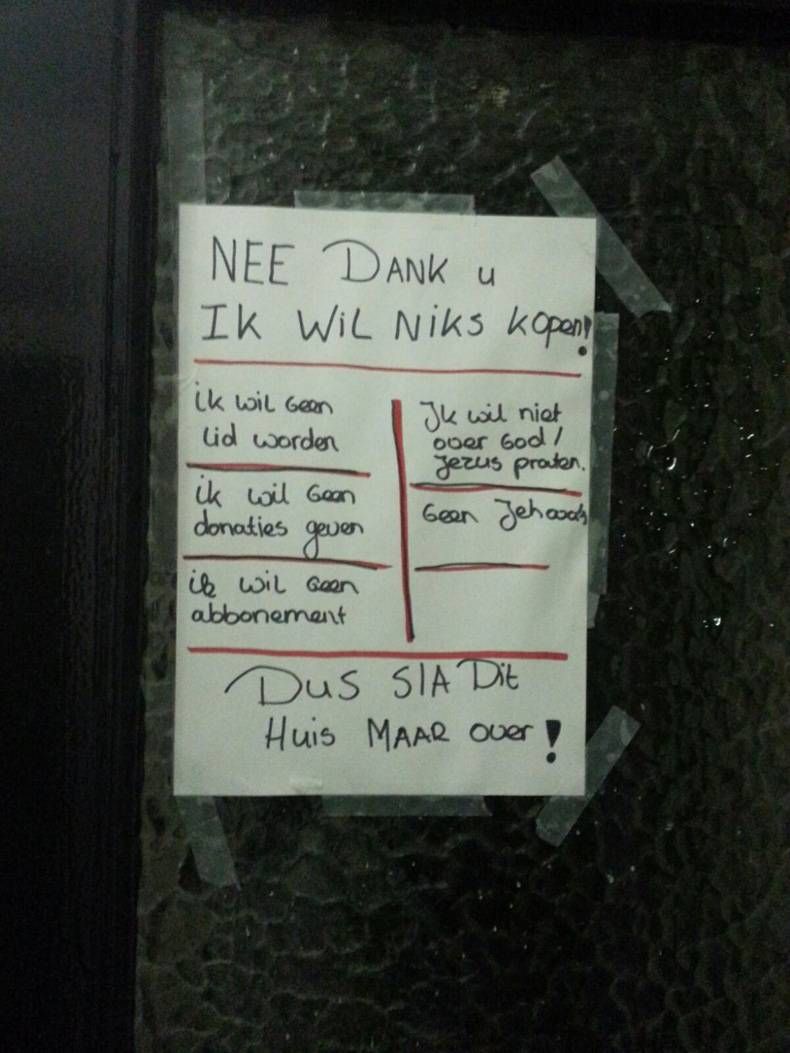 NEE DANK u
IK WIL NIKS KOPEN!
ik wil Geen
lid worden
ik wil Geen
donaties geven
ik wil Geen
abbonement
Ik wil niet
over God/
Jezus praten.
Geen Jehova's
DUS SlA Dit
Huis MAAR over!